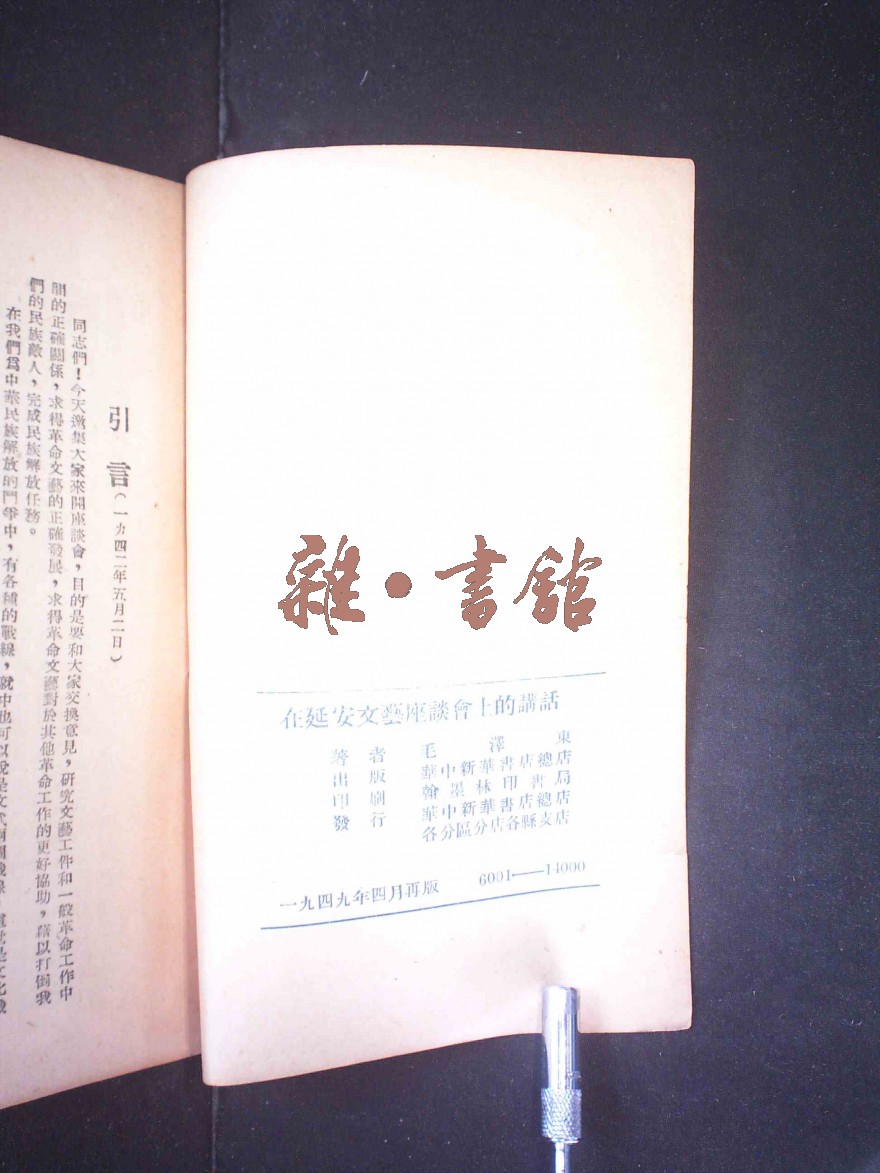 雜·書館
在延安文藝座談會上的講話
著者 毛澤東
出版 華中新華書店總店
印刷 翰墨林印書局
發行 華中新華書店總店
各分區分店各縣支店
一九四九年四月再版 6001——14000
引言(一九四二年五月二日)
同志們!今天邀集大家來開座談會,目的是要和大家交換意見,研究文藝工作和一般革命工作中
間的正確關係,求得革命文藝的正確發展,求得革命文藝對於其他革命工作的更好協助,藉以打倒我
們的民族敵人,完成民族解放任務。
在我們爲中華民族解放的鬥爭中,有各種的戰線,就中也可以說是文武兩個戰線